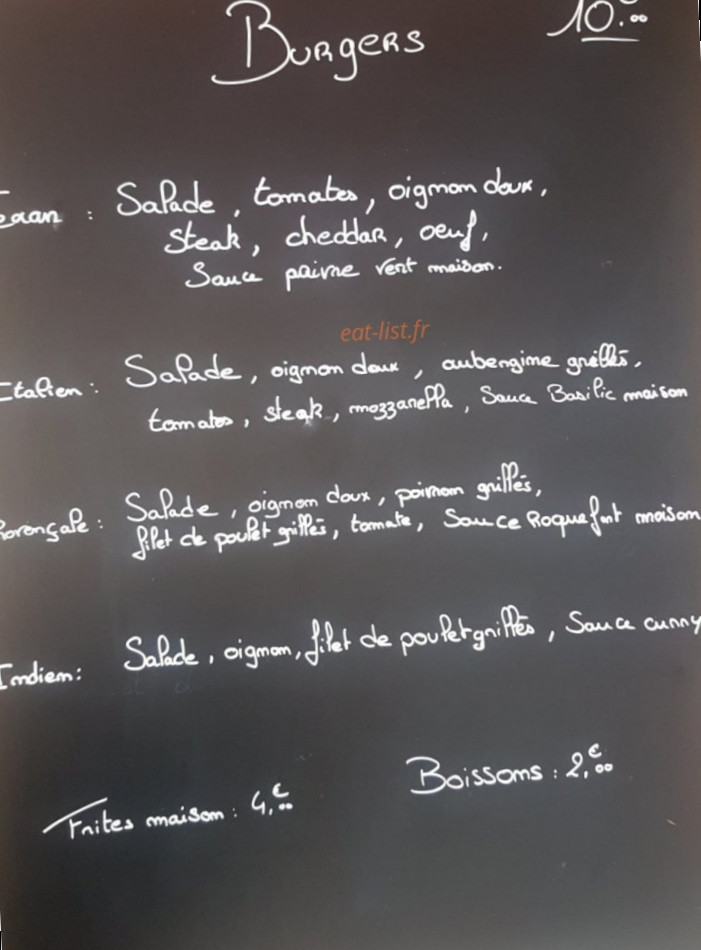 Burgers 10.00
Texan : Salade, tomates, oignon doux,
steak, cheddar, oeuf,
Sauce poivre vert maison.
eat-list.fr
Italien : Salade, oignon doux, aubergine grillés,
tomates, steak, mozzarella, Sauce Basilic maison
Provençale : Salade, oignon doux, poivron grillés,
filet de poulet grillés, tomate, Sauce Roquefort maison
Indien : Salade, oignon, filet de poulet grillés, Sauce curry
Boissons : 2,€00
Frites maison : 4,€00